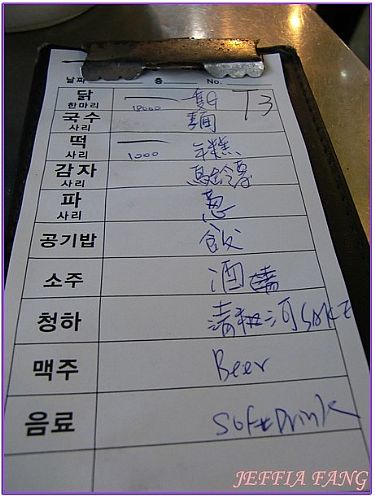 날짜 층 No.
닭 한마리 18000 一隻 T3
국수 사리 麵
떡 사리 1000 年糕
감자 사리 馬鈴薯
파 사리 蔥
공기밥 飯
소주 酒
청하 清和河 SAKE
맥주 Beer
음료 Soft Drink
JEFFIA FANG